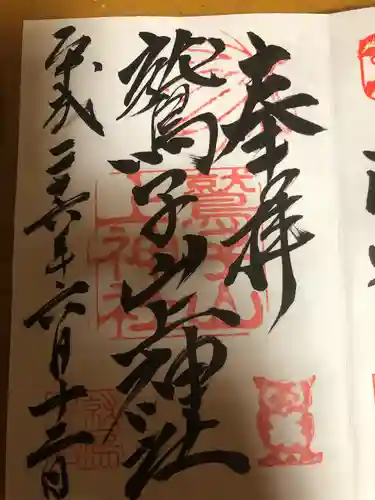 奉拝
鷲子山上神社
平成二十六年六月十三日
鷲子山
上神社